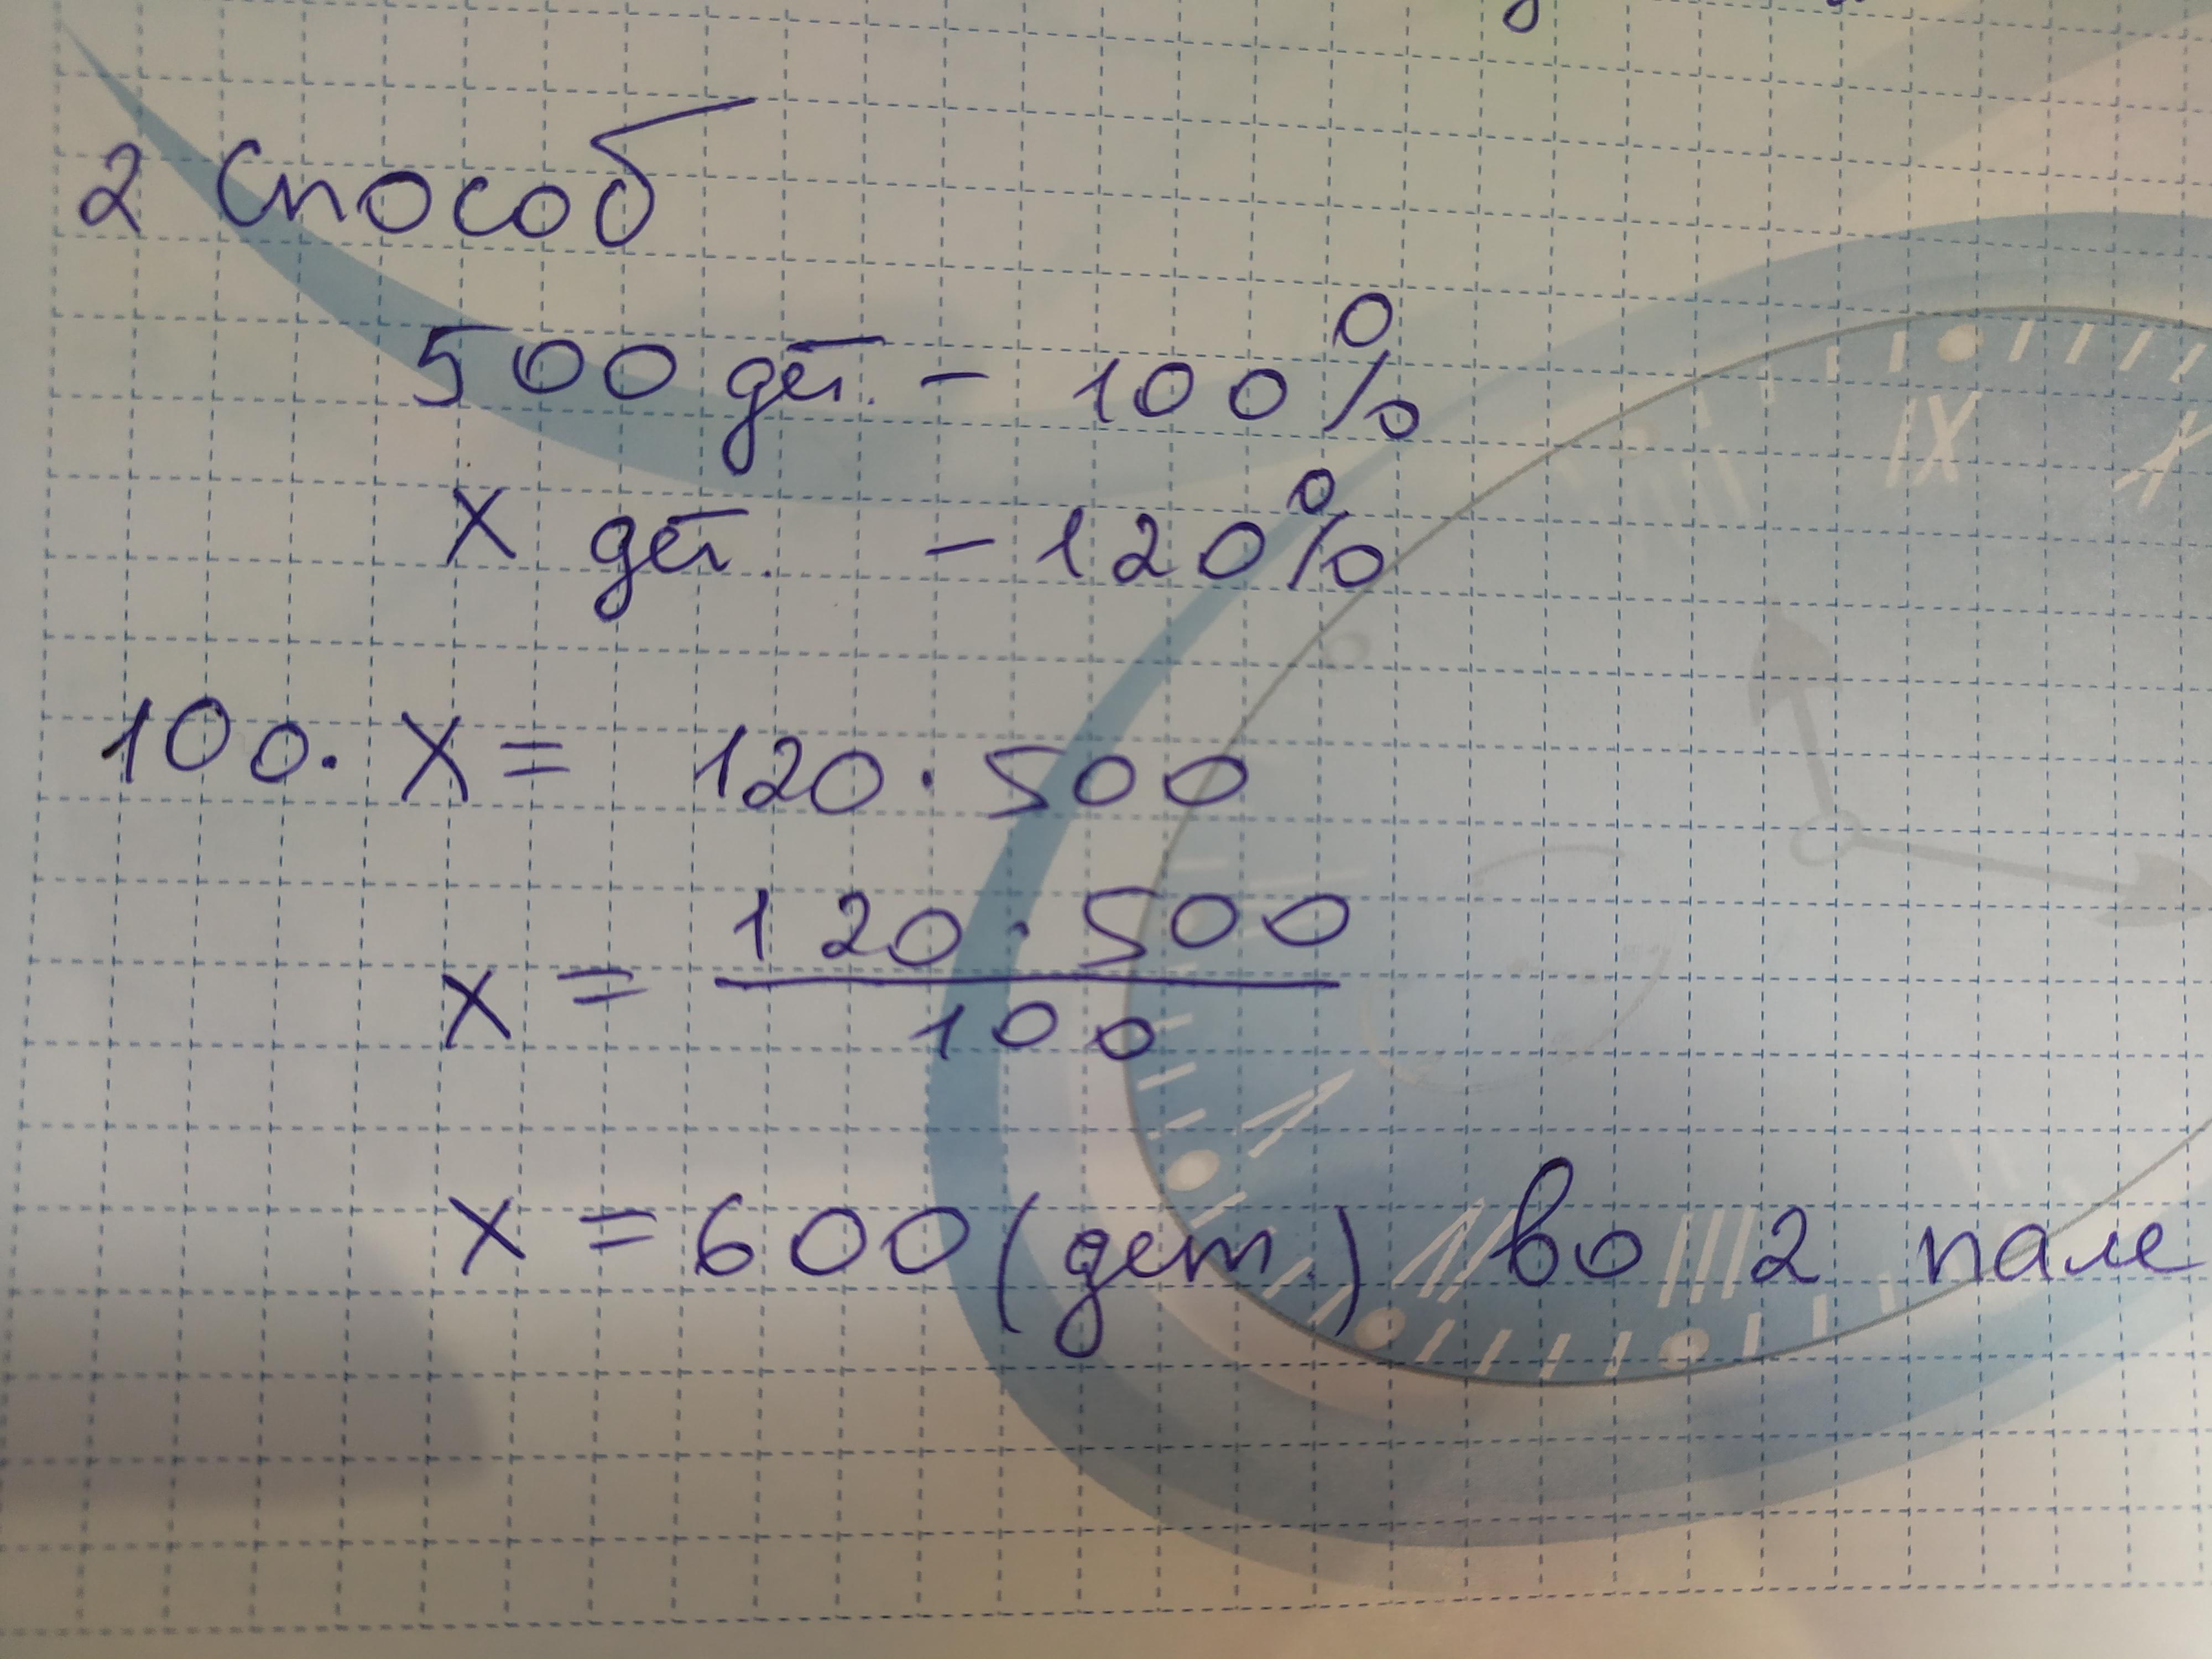 2 способ
500 дет. - 100%
x дет. - 120%
100 · x = 120 · 500
x = 120 · 500 / 100
x = 600 (дет.) во 2 пале
IX X